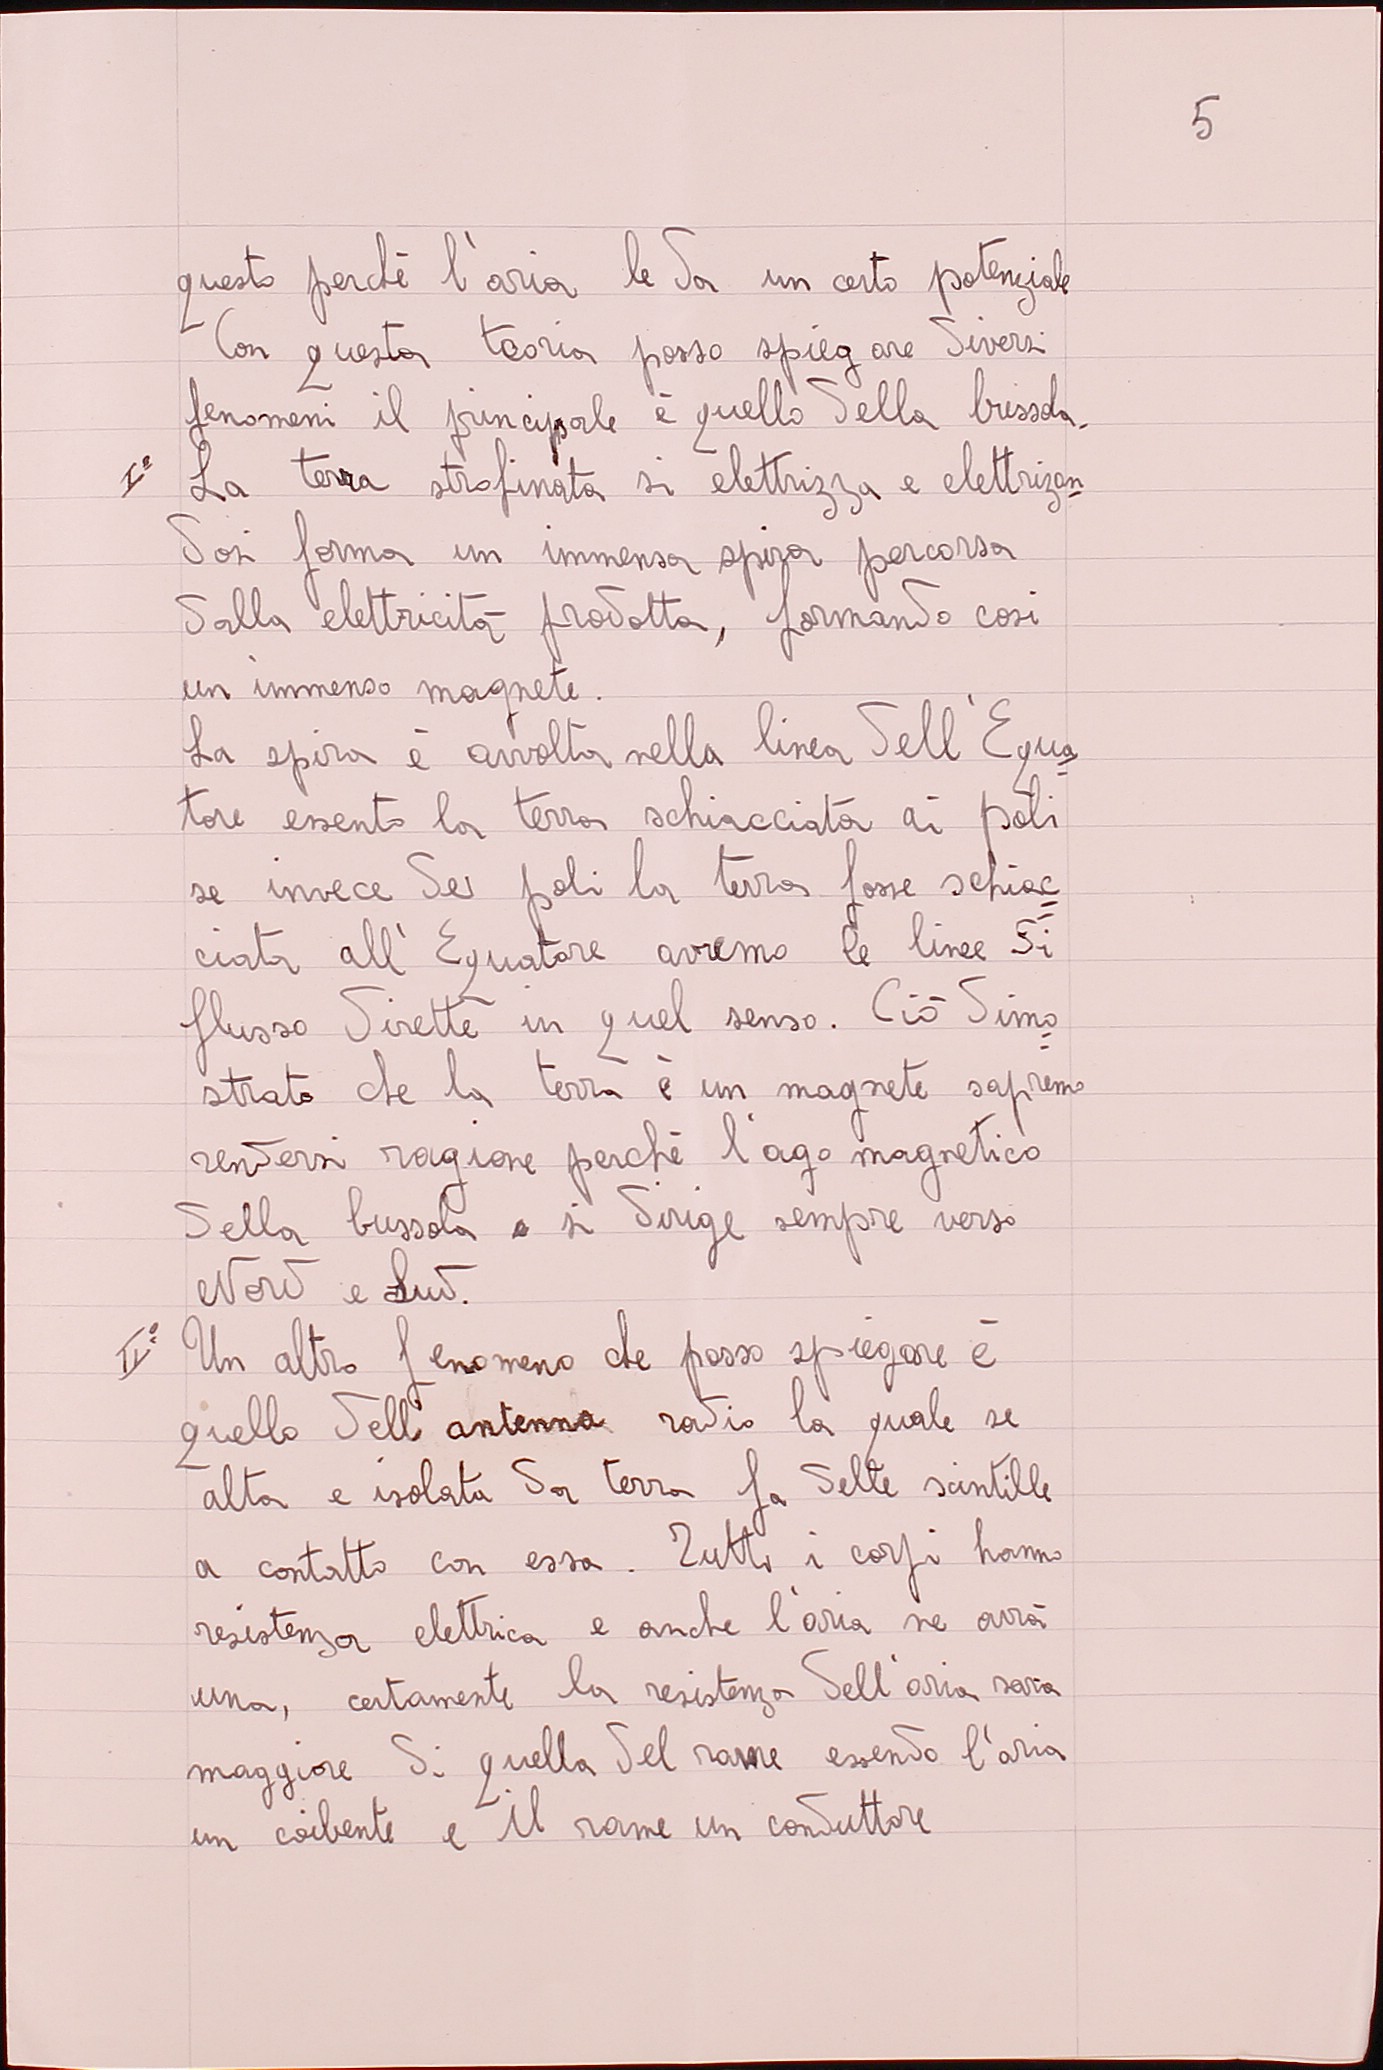 5
questo perchè l'aria le da un certo potenziale
Con questa teoria posso spiegare diversi
fenomeni il principale è quello della bussola.
I° La terra strofinata si elettrizza e elettrizan=
dosi forma un immensa spira percorsa
dalla elettricità prodotta, formando cosi
un immenso magnete.
La spira è avvolta nella linea dell'Equa=
tore essento la terra schiacciata ai poli
se invece dei poli la terra fosse schiac=
ciata all'Equatore avremo le linee di
flusso dirette in quel senso. Ciò dimo=
strato che la terra è un magnete sapremo
rendersi ragione perchè l'ago magnetico
della bussola si dirige sempre verso
Nord e Sud.
II° Un altro fenomeno che posso spiegare è
quello dell'antenna radio la quale se
alta e isolata da terra fa delle scintille
a contatto con essa. Tutti i corpi hanno
resistenza elettrica e anche l'aria ne avrà
una, certamente la resistenza dell'aria sara
maggiore di quella del rame essendo l'aria
un coibente e il rame un conduttore